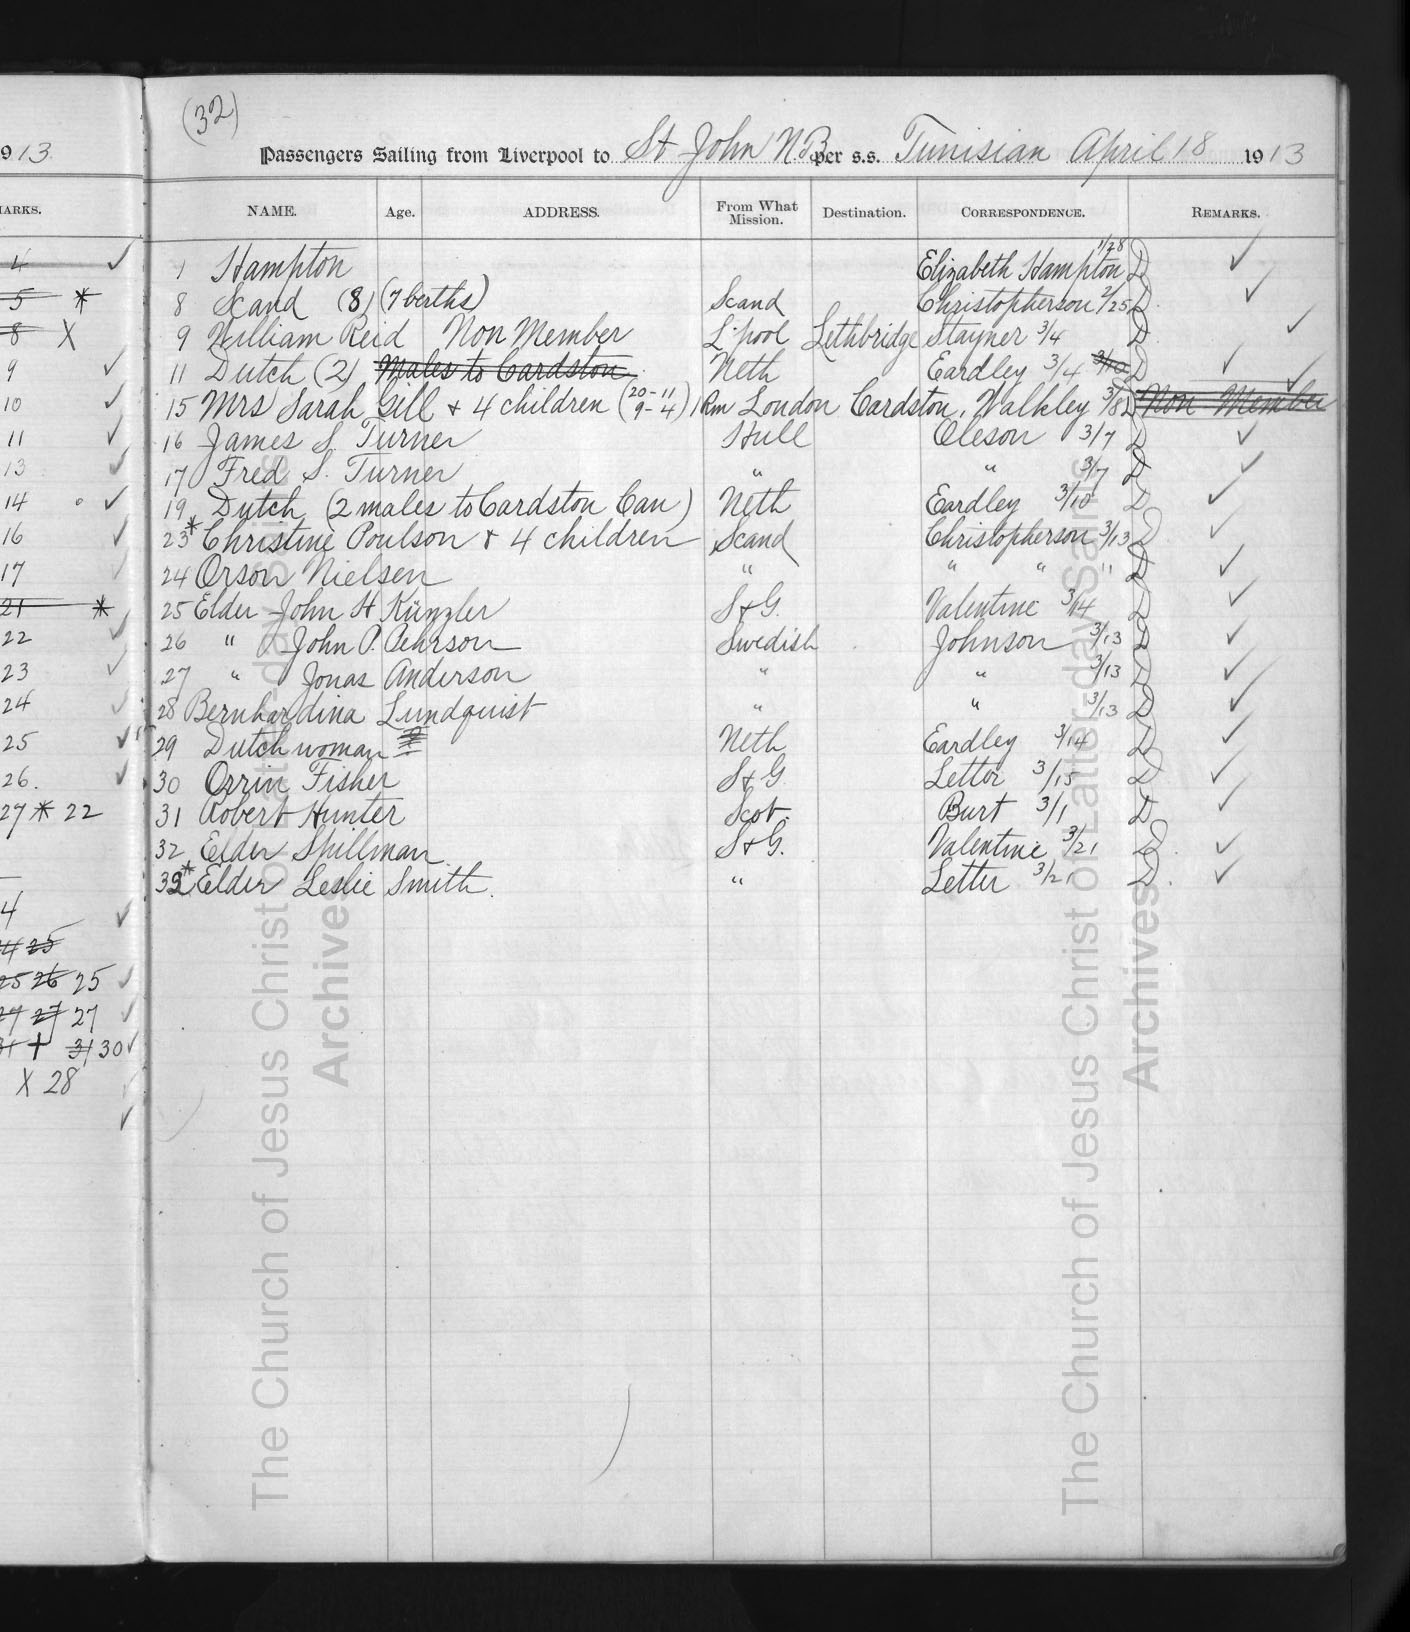 (32)
1913
Passengers Sailing from Liverpool to St John N.B. per s.s. Tunisian April 18 1913
NAME. Age. ADDRESS. From What Mission. Destination. CORRESPONDENCE. REMARKS.
1 Hampton Elizabeth Hampton 1/28 D ✓
8 Scand (8) (7 berths) Scand Christopherson 2/25 D ✓
9 William Reid Non Member L'pool Lethbridge Stayner 3/4 D ✓
11 Dutch (2) Males to Cardston Neth Eardley 3/4 3/10 D ✓
15 Mrs Sarah Gill & 4 children (20-11 9-4) 1 Rm London Cardston. Walkley 3/8 D Non Member ✓
16 James S. Turner Hull Oleson 3/7 D ✓
17 Fred S. Turner " " 3/7 D ✓
19 Dutch (2 males to Cardston Can) Neth Eardley 3/10 D ✓
23* Christine Poulson & 4 children Scand Christopherson 3/13 D ✓
24 Orson Nielsen " " " " D ✓
25 Elder John H Künzler S&G. Valentine 3/14 D ✓
26 " John P. Pehrson Swedish Johnson 3/13 D ✓
27 " Jonas Anderson " " 3/13 D ✓
28 Bernhardina Lundquist " " 3/13 D ✓
29 Dutch woman Neth Eardley 3/14 D ✓
30 Orrin Fisher S&G. Letter 3/15 D ✓
31 Robert Hunter Scot. Burt 3/1 D ✓
32 Elder Spillman S&G. Valentine 3/21 D ✓
33* Elder Leslie Smith. " Letter 3/21 D. ✓
ARKS.
4 ✓
5 *
8 X
9 ✓
10 ✓
11 ✓
13 ✓
14 ✓
16 ✓
17 ✓
21 *
22 ✓
23 ✓
24 ✓
25 ✓
26. ✓
27 * 22
4 ✓
24 25
25 26 25 ✓
27 27 27 ✓
31 + 31 30 ✓
X 28
✓
The Church of Jesus Christ of Latter-day Saints
Archives
The Church of Jesus Christ of Latter-day Saints
Archives